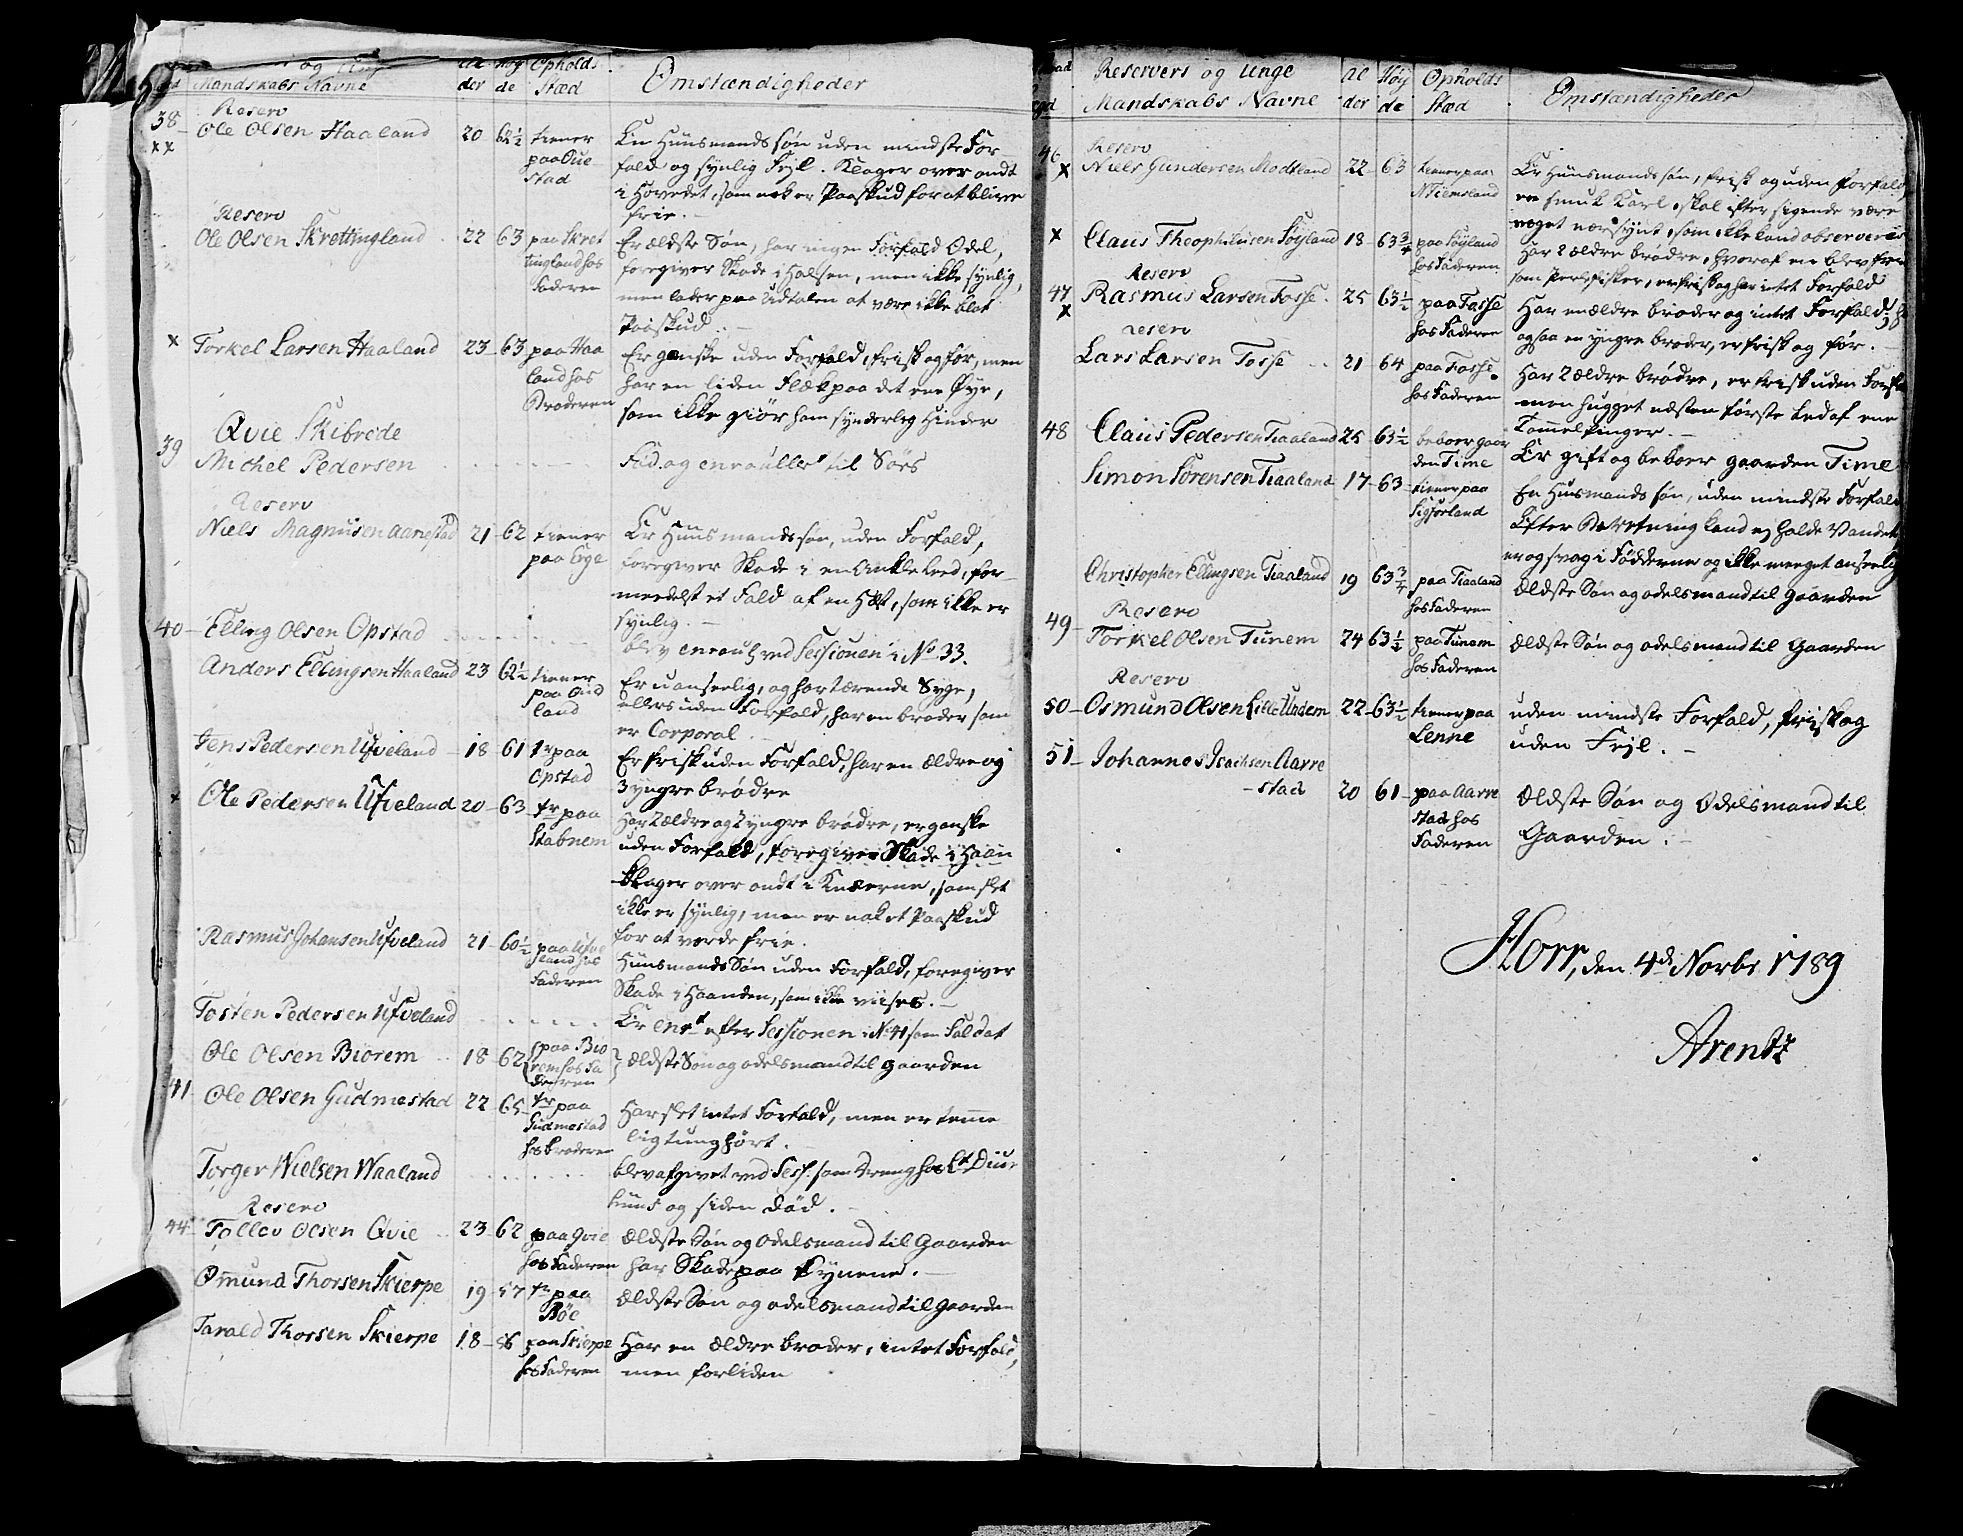 og Unge
Mandskabs Navne
Al
der
Høy
de
Opholds
Stæd
Omstændigheder
38
Reserv
Ole Olsen Haaland 20 62½ tiener
paa Que
stad
Er Huusmands søn uden mindste For
fald og synlig Fejl. Klager over ondt
i Hovedet, som nok er Paaskud for at blive
frie.
Reserv
Ole Olsen Skrettingland 22 63 paa Skret
tingland hos
Faderen
Er ældste Søn, har ingen Forfald Odel,
foregiver Skade i Halsen, men ikke synlig,
men lader paa Udtalen at være ikke blot
Paaskud.
x Torkel Larsen Haaland 23 63 paa Haa
land hos
Broderen
Er ganske uden Forfald, frisk og før, men
har en liden Flæk paa det ene Øye,
som ikke giør ham synderlig Hinder
39
Qvie Skibrede
Michel Pedersen
Fød. og enroulleret til Søes
Reserv
Niels Magnusen Aanestad 21 62 tiener
paa Erge
Er Huusmands søn, uden Forfald,
foregiver Skade i en Ankle Leed, for-
meedelst et Fald af en Hæst, som ikke er
synlig.
40 Elling Olsen Opstad
blev enroull. ved Sessionen i No 33.
Anders Ellingsen Haaland 23 62½ tiener
paa Aud
land
Er uanseelig, og har tærende Syge,
ellers uden Forfald, har en broder som
er Corporal.
Jens Pedersen Ufveland 18 61 tr paa
Opstad
Er frisk uden Forfald, har en ældre og
3 yngre brødre
x Ole Pedersen Ufveland 20 63 tr paa
Stabnem
Har 2 ældre og 2 yngre brødre, er ganske
uden Forfald, foregiver Skade i Haan
Klager over ondt i Knæerne, som slet
ikke er synlig, men er nok et Paaskud
for at vorde frie.
Rasmus Johansen Ufveland 21 60½ paa Ufve
land hos
Faderen
Huusmands Søn uden Forfald, foregiver
Skade i Haanden, som ikke viises.
Tosten Pedersen Ufveland
Er enrt efter Sessionen i No 41 som Soldat
Ole Olsen Biorem 18 62 paa Bio
rem hos Fa
deren
Ældste Søn og odelsmand til gaarden
41 Ole Olsen Gudmestad 22 65 tr paa
Gudmestad
hos Broderen
Har slet intet Forfald, men er temme
lig tunghørt.
Torger Nielsen Waaland
blev afgivet ved Sess. som Dreng hos Lt Diur
huus og siden død.
Reserv
44 Tollev Olsen Qvie 23 62 paa Qvie
hos Faderen
Ældste Søn og Odelsmand til Gaarden
har Skade paa Øynene.
Omund Thorsen Skierpe 19 57 tr paa
Bøe
Ældste Søn og odelsmand til Gaarden
Tarald Thorsen Skierpe 18 56 paa Skierpe
hos Faderen
Har en ældre broder, intet Forfald,
men forliden
Reservers og Unge
Mandskabs Navne
Al
der
Høy
de
Opholds
Stæd
Omstændigheder
46
x
Reserv
Niels Gundersen Modtland 22 63 tiener paa
Niemsland
Er Huusmands søn, frisk og uden Forfald,
en smuk Karl, skal efter sigende være
meget nærsynt, som ikke kand observeres
x Claus Theophilusen Søyland 18 63¾ paa Søyland
hos Faderen
Har 2 ældre brødre, hvoraf en blev frie
som Perlefisker, er frisk og har intet Forfald
47
x
Reserv
Rasmus Larsen Fosse 25 63½ paa Fosse
hos Faderen
Har en ældre broder og intet Forfald,
ogsaa en yngre broder, er frisk og før.
reserv
Lars Larsen Fosse 21 64 paa Fosse
hos Faderen
Har 2 ældre brødre, er frisk uden Forfald
men hugget næsten første Led af ene
Tommelfinger.
48 Claus Pedersen Tiaaland 25 63½ beboer gaar
den Time
Er gift og beboer gaarden Time
Simon Sørensen Tiaaland 17 63 tiener paa
Sigforland
En Huusmands søn, uden mindste Forfald
Efter Beretning kand ej holde Vandet
er og svag i Fødderne og ikke meeget anseelig
Christopher Ellingsen Tiaaland 19 63¾ paa Tiaaland
hos Faderen
Ældste Søn og odelsmand til Gaarden
49
Reserv
Torkel Olsen Tunem 24 63½ paa Tunem
hos Faderen
Ældste Søn og odelsmand til Gaarden
Reserv
50 Osmund Olsen Lille Undem 22 63½ tiener paa
Lenne
uden mindste Forfald, frisk og
uden Fejl.
51 Johannes Isachsen Aarre
stad 20 61 paa Aarre
stad hos
Faderen
Ældste Søn og Odelsmand til
Gaarden.
Horr, den 4de Novbr 1789
Arentz